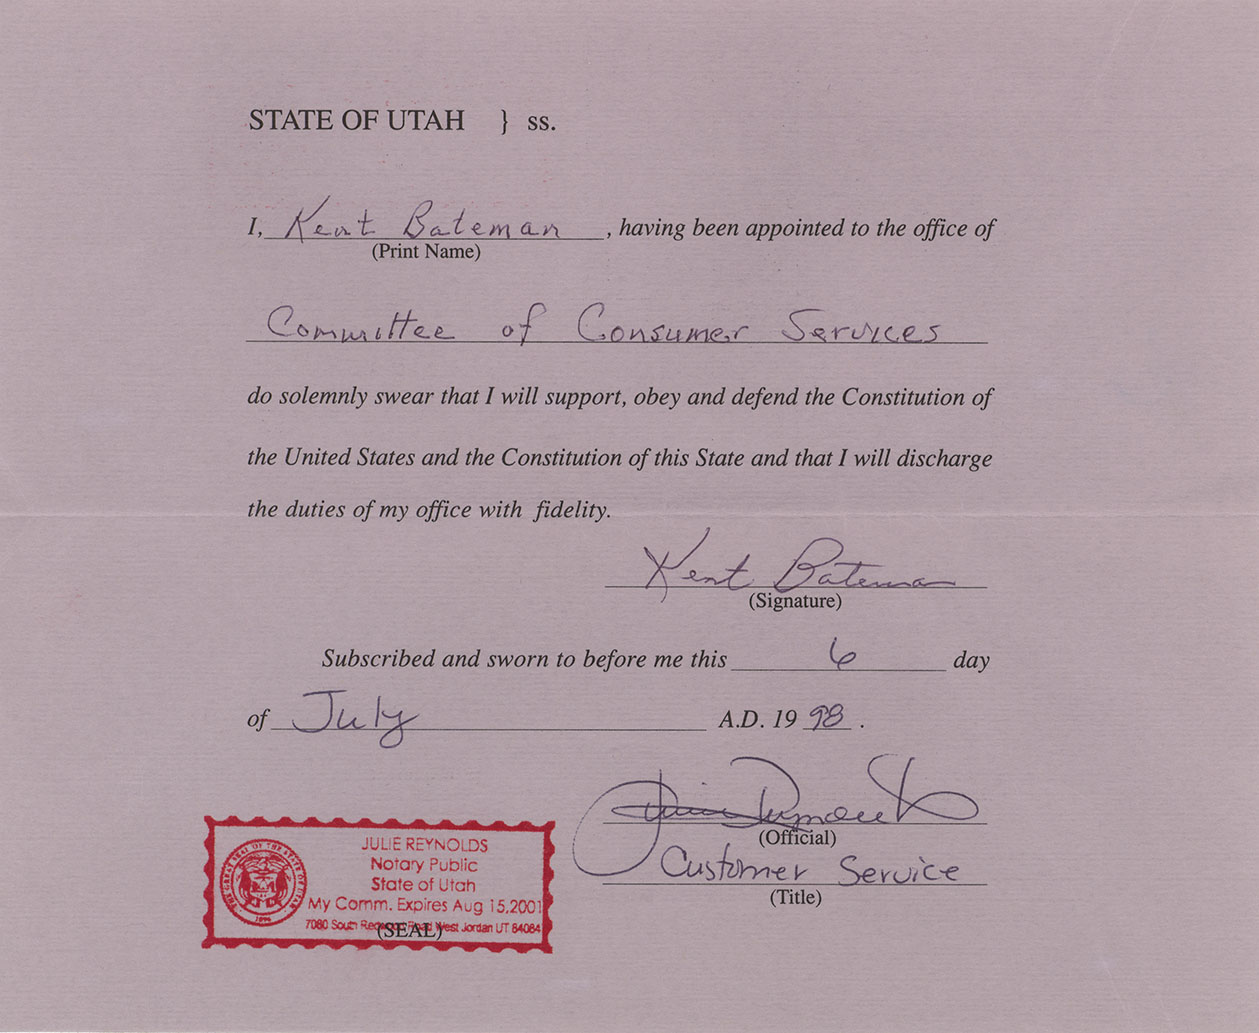 STATE OF UTAH } ss.
I, Kent Bateman , having been appointed to the office of
(Print Name)
Committee of Consumer Services
do solemnly swear that I will support, obey and defend the Constitution of
the United States and the Constitution of this State and that I will discharge
the duties of my office with fidelity.
Kent Bateman
(Signature)
Subscribed and sworn to before me this 6 day
of July A.D. 19 98 .
(Official)
Customer Service
(Title)
THE GREAT SEAL OF THE STATE OF UTAH
1896
JULIE REYNOLDS
Notary Public
State of Utah
My Comm. Expires Aug 15,2001
7080 South Redwood Road West Jordan UT 84084
(SEAL)